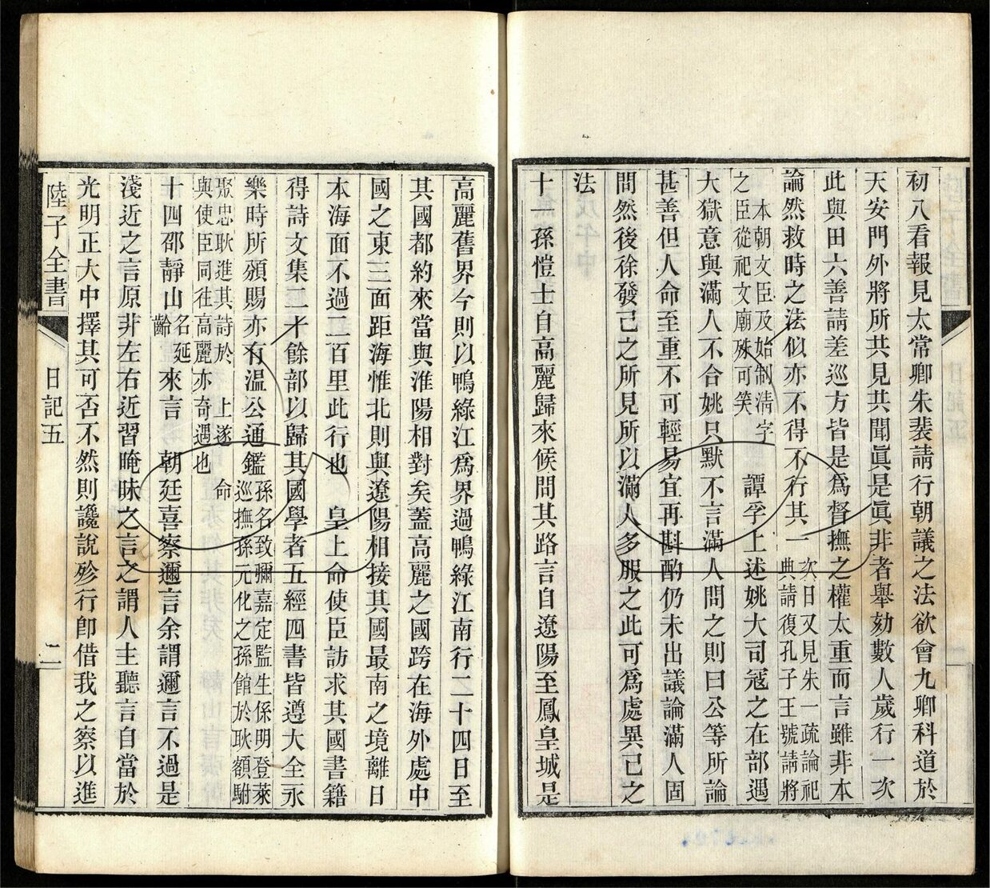 初八看報見太常卿朱裴請行朝議之法欲會九卿科道於
天安門外將所共見共聞眞是眞非者舉劾數人歲行一次
此與田六善請差巡方皆是爲督撫之權太重而言雖非本
論然救時之法似亦不得不行其一次日又見朱一疏論祀
典請復孔子王號請將
本朝文臣及始制淸字
之臣從祀文廟殊可笑
譚孚上述姚大司寇之在部遇
大獄意與滿人不合姚只默不言滿人問之則曰公等所論
甚善但人命至重不可輕易宜再斟酌仍未出議論滿人固
問然後徐發己之所見所以滿人多服之此可爲處異己之
法
十一孫愷士自高麗歸來候問其路言自遼陽至鳳皇城是
高麗舊界今則以鴨綠江爲界過鴨綠江南行二十四日至
其國都約來當與淮陽相對矣蓋高麗之國跨在海外處中
國之東三面距海惟北則與遼陽相接其國最南之境離日
本海面不過二百里此行也 皇上命使臣訪求其國書籍
得詩文集二十餘部以歸其國學者五經四書皆遵大全永
樂時所頒賜亦有溫公通鑑孫名致彌嘉定監生係明登萊
巡撫孫元化之孫館於耿額駙
聚忠耿進其詩於 上遂 命
與使臣同往高麗亦奇遇也
十四邵靜山名延齡來言 朝廷喜察邇言余謂邇言不過是
淺近之言原非左右近習唵昧之言之謂人主聽言自當於
光明正大中擇其可否不然則讒說殄行卽借我之察以進
陸子全書
日記五
二